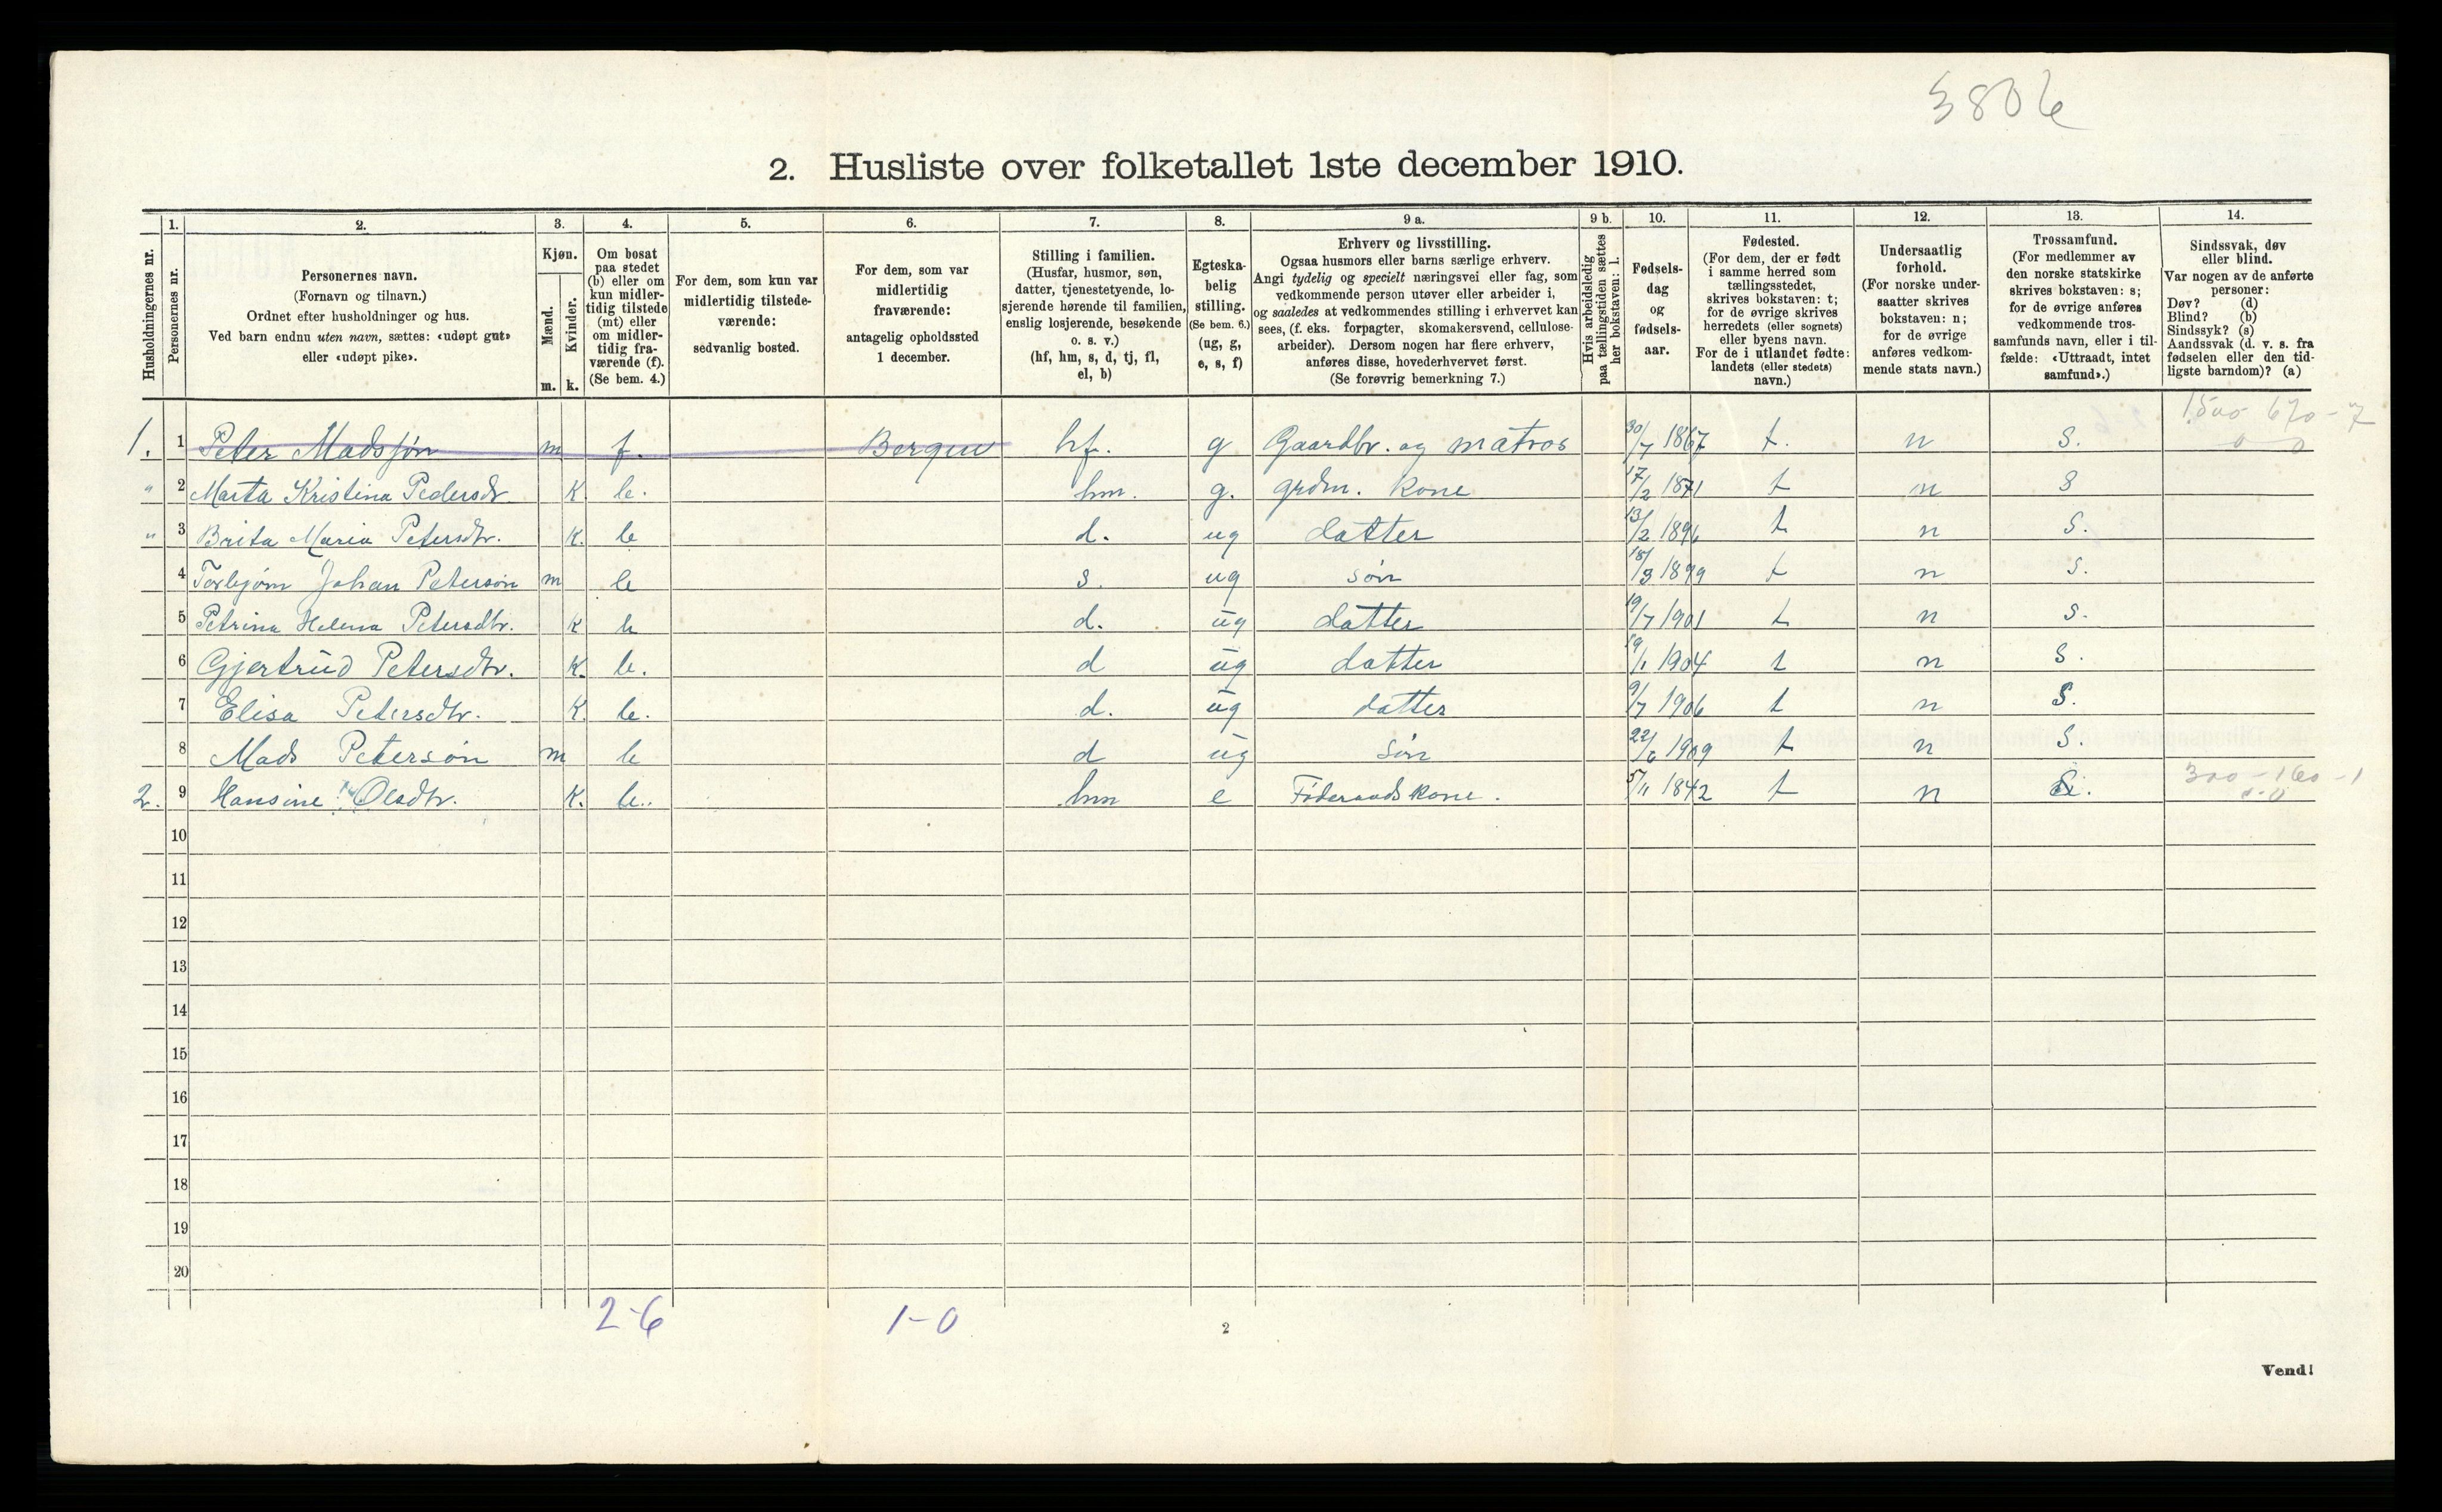 3806
2. Husliste over folketallet 1ste december 1910.
Husholdningernes nr.
1. Personernes nr.
2. Personernes navn. (Fornavn og tilnavn.) Ordnet efter husholdninger og hus. Ved barn endnu uten navn, sættes: «udøpt gut» eller «udøpt pike».
3. Kjøn. Mænd. m. Kvinder. k.
4. Om bosat paa stedet (b) eller om kun midlertidig tilstede (mt) eller om midlertidig fraværende (f). (Se bem. 4.)
5. For dem, som kun var midlertidig tilstedeværende: sedvanlig bosted.
6. For dem, som var midlertidig fraværende: antagelig opholdssted 1 december.
7. Stilling i familien. (Husfar, husmor, søn, datter, tjenestetyende, losjerende hørende til familien, enslig losjerende, besøkende o. s. v.) (hf, hm, s, d, tj, fl, el, b)
8. Egteskabelig stilling. (Se bem. 6.) (ug, g, e, s, f)
9 a. Erhverv og livsstilling. Ogsaa husmors eller barns særlige erhverv. Angi tydelig og specielt næringsvei eller fag, som vedkommende person utøver eller arbeider i, og saaledes at vedkommendes stilling i erhvervet kan sees, (f. eks. forpagter, skomakersvend, cellulosearbeider). Dersom nogen har flere erhverv, anføres disse, hovederhvervet først. (Se forøvrig bemerkning 7.)
9 b. Hvis arbeidsledig paa tællingstiden sættes her bokstaven: l.
10. Fødselsdag og fødselsaar.
11. Fødested. (For dem, der er født i samme herred som tællingsstedet, skrives bokstaven: t; for de øvrige skrives herredets (eller sognets) eller byens navn. For de i utlandet fødte: landets (eller stedets) navn.)
12. Undersaatlig forhold. (For norske undersaatter skrives bokstaven: n; for de øvrige anføres vedkommende stats navn.)
13. Trossamfund. (For medlemmer av den norske statskirke skrives bokstaven: s; for de øvrige anføres vedkommende trossamfunds navn, eller i tilfælde: «Uttraadt, intet samfund».)
14. Sindssvak, døv eller blind. Var nogen av de anførte personer: Døv? (d) Blind? (b) Sindssyk? (s) Aandssvak (d. v. s. fra fødselen eller den tidligste barndom)? (a)
1500 670-7
0 0
1. 1 Peter Madssøn m f. Bergen hf. g Gaardbr. og matros 30/7 1867 t. n s.
" 2 Marta Kristina Pedersdr K b. hm. g. grdm. Kone 17/2 1871 t n s
" 3 Brita Maria Petersdtr. K. b d. ug datter 13/2 1896 t n s.
4 Torbjørn Johan Peterson m b s. ug søn 18/3 1899 t n s.
5 Petrina Helena Petersdtr. K b d. ug datter 19/7 1901 t n s.
6 Gjertrud Petersdtr. K. b. d ug datter 19/1 1904 t n s.
7 Elisa Petersdtr. K b. d. ug datter 9/7 1906 t n s.
8 Mads Petersøn m b d ug søn 22/6 1909 t n s.
300-160-1
0-0
2. 9 Hansine Olsdtr. K. b. hm e Føderaadskone. 5/11 1842 t n s.
10
11
12
13
14
15
16
17
18
19
20
2-6 1-0
2
Vend!